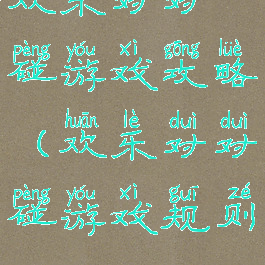 欢乐对对
pàng yóu xì gōng lüè
碰游戏攻略
huān lè duì duì
（欢乐对对
pàng yóu xì guī zé
碰游戏规则